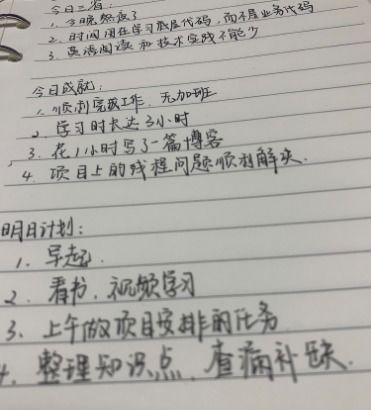 今日三省:
1. 今晚熬夜了
2. 时间用在学习底层代码,而不是业务代码
3. 英语阅读和技术实践不能少
今日成就:
1. 顺利完成工作,无加班
2. 学习时长达3小时
3. 花1小时写了一篇博客
4. 项目上的线程问题顺利解决.
明日计划:
1. 早起.
2. 看书、视频学习
3. 上午做项目安排的任务
4. 整理知识点,查漏补缺.